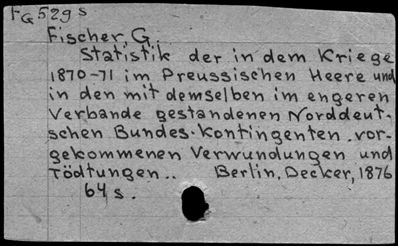 FG 529 s
Fischer, G.
Statistik der in dem Kriege
1870-71 im Preussischen Heere und
in den mit demselben im engeren
Verbande gestandenen Norddeut-
schen Bundes-Kontingenten vor-
gekommenen Verwundungen und
Tödtungen.. Berlin, Decker, 1876
64 s.